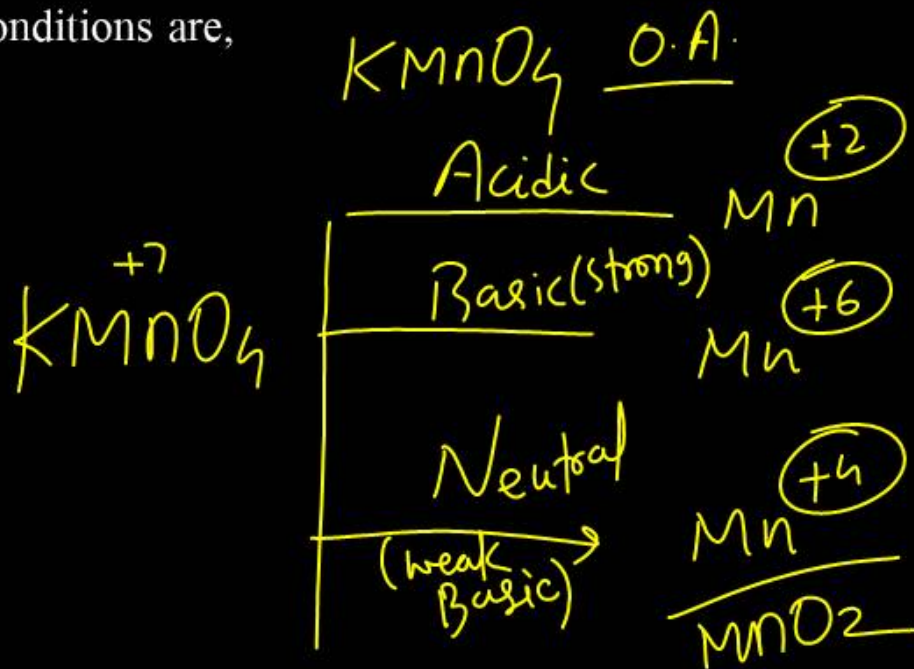 onditions are,
KMnO4 O.A.
Acidic
Mn +2
+7
KMnO4
Basic(strong)
Mn +6
Neutral
(weak
Basic)
Mn +4
MnO2